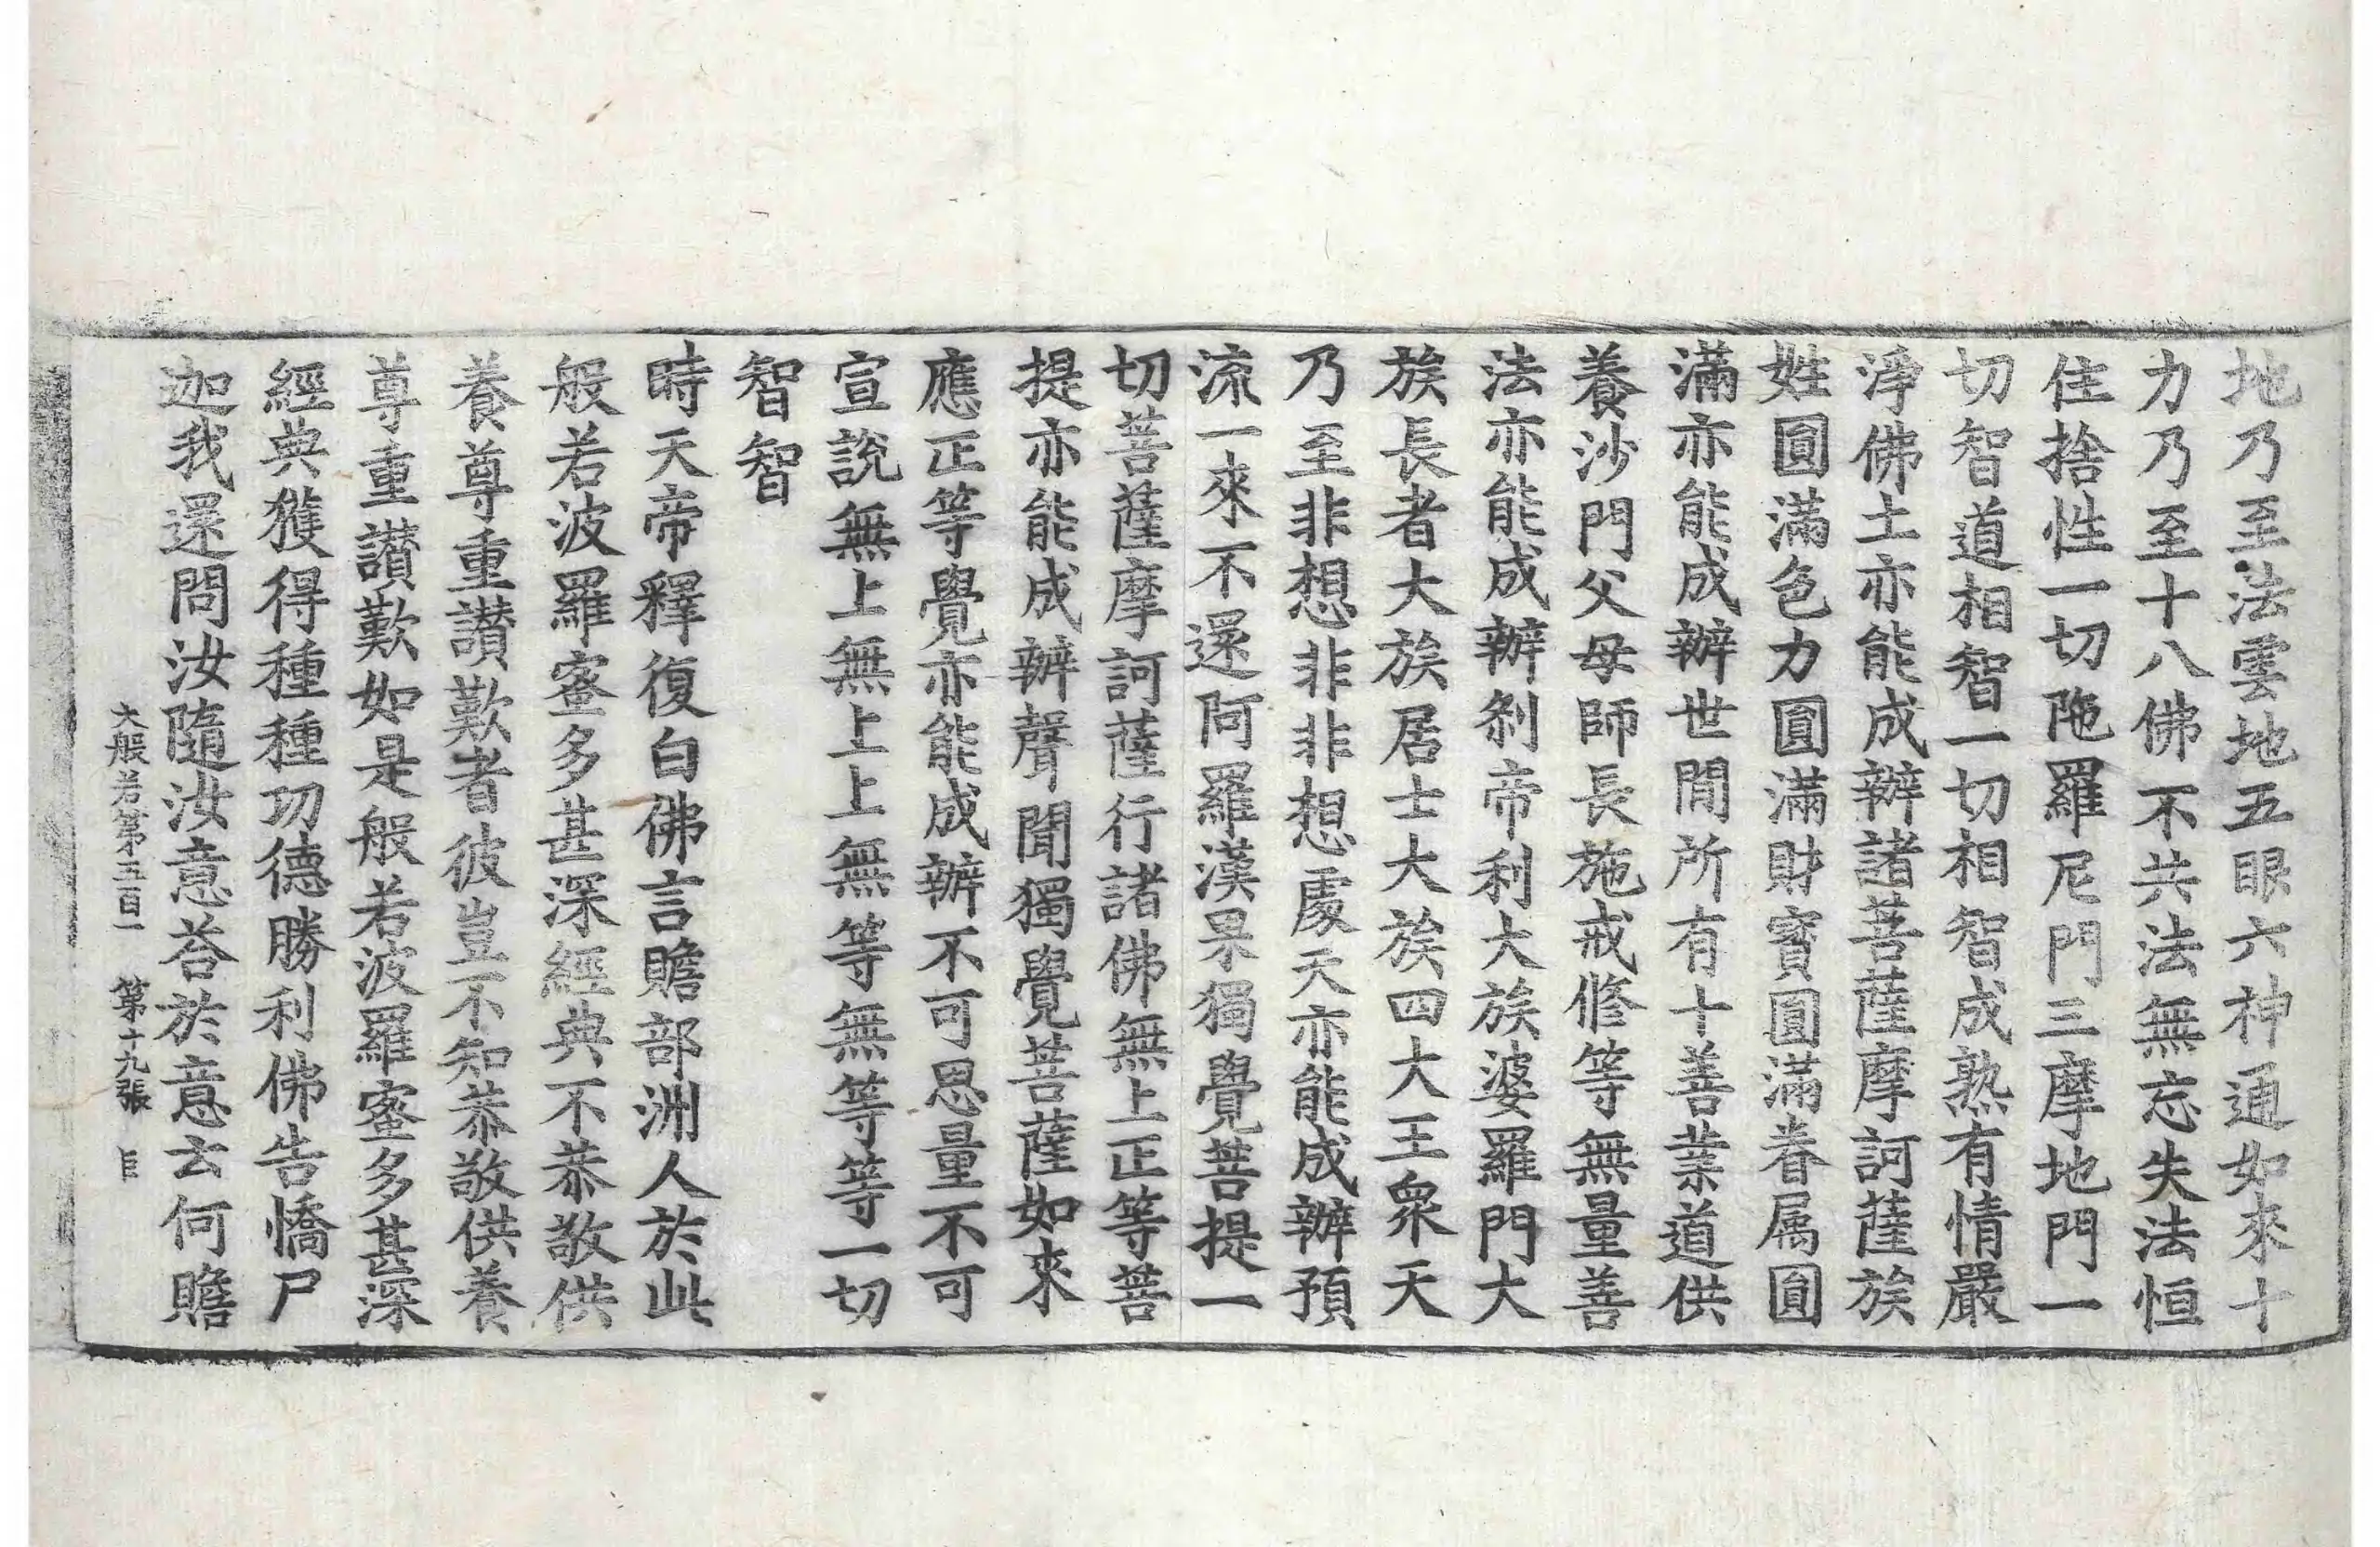 地乃至法雲地五眼六神通如來十
力乃至十八佛不共法無忘失法恒
住捨性一切陁羅尼門三摩地門一
切智道相智一切相智成熟有情嚴
淨佛土亦能成辦諸菩薩摩訶薩族
姓圓滿色力圓滿財寶圓滿眷属圓
滿亦能成辦世間所有十善業道供
養沙門父母師長施戒修等無量善
法亦能成辦刹帝利大族婆羅門大
族長者大族居士大族四大王衆天
乃至非想非非想處天亦能成辦預
流一來不還阿羅漢果獨覺菩提一
切菩薩摩訶薩行諸佛無上正等菩
提亦能成辦聲聞獨覺菩薩如來
應正等覺亦能成辦不可思量不可
宣說無上無上上無等無等等一切
智智
時天帝釋復白佛言贍部洲人於此
般若波羅蜜多甚深經典不恭敬供
養尊重讃歎者彼豈不知恭敬供養
尊重讃歎如是般若波羅蜜多甚深
經典獲得種種功德勝利佛告憍尸
迦我還問汝隨汝意荅於意云何贍
大般若第五百一 第十九張 臣